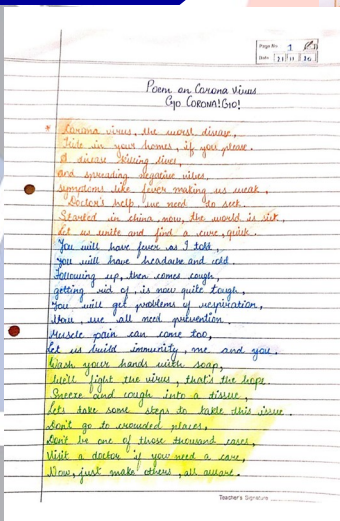 Page No. 1
Date 21 11 20
Poem on Corona Virus
GO CORONA! GO!
* Corona virus, the worst disease,
Hide in your homes, if you please.
A disease killing lives,
and spreading negative vibes,
symptoms like fever making us weak,
Doctor's help, we need to seek.
Started in china, now, the world is sick,
Let us unite and find a cure, quick.
You will have fever as I told,
you will have headache and cold,
Following up, then comes cough,
getting rid of, is now quite tough,
You will get problems of respiration,
Now, we all need prevention.
Muscle pain can come too,
Let us build immunity, me and you.
Wash your hands with soap,
We'll fight the virus, that's the hope.
Sneeze and cough into a tissue,
Lets take some steps to takle this issue.
Don't go to crowded places,
Don't be one of those thousand cases,
Visit a doctor if you need a care,
Now, just make others, all aware.
Teacher's Signature